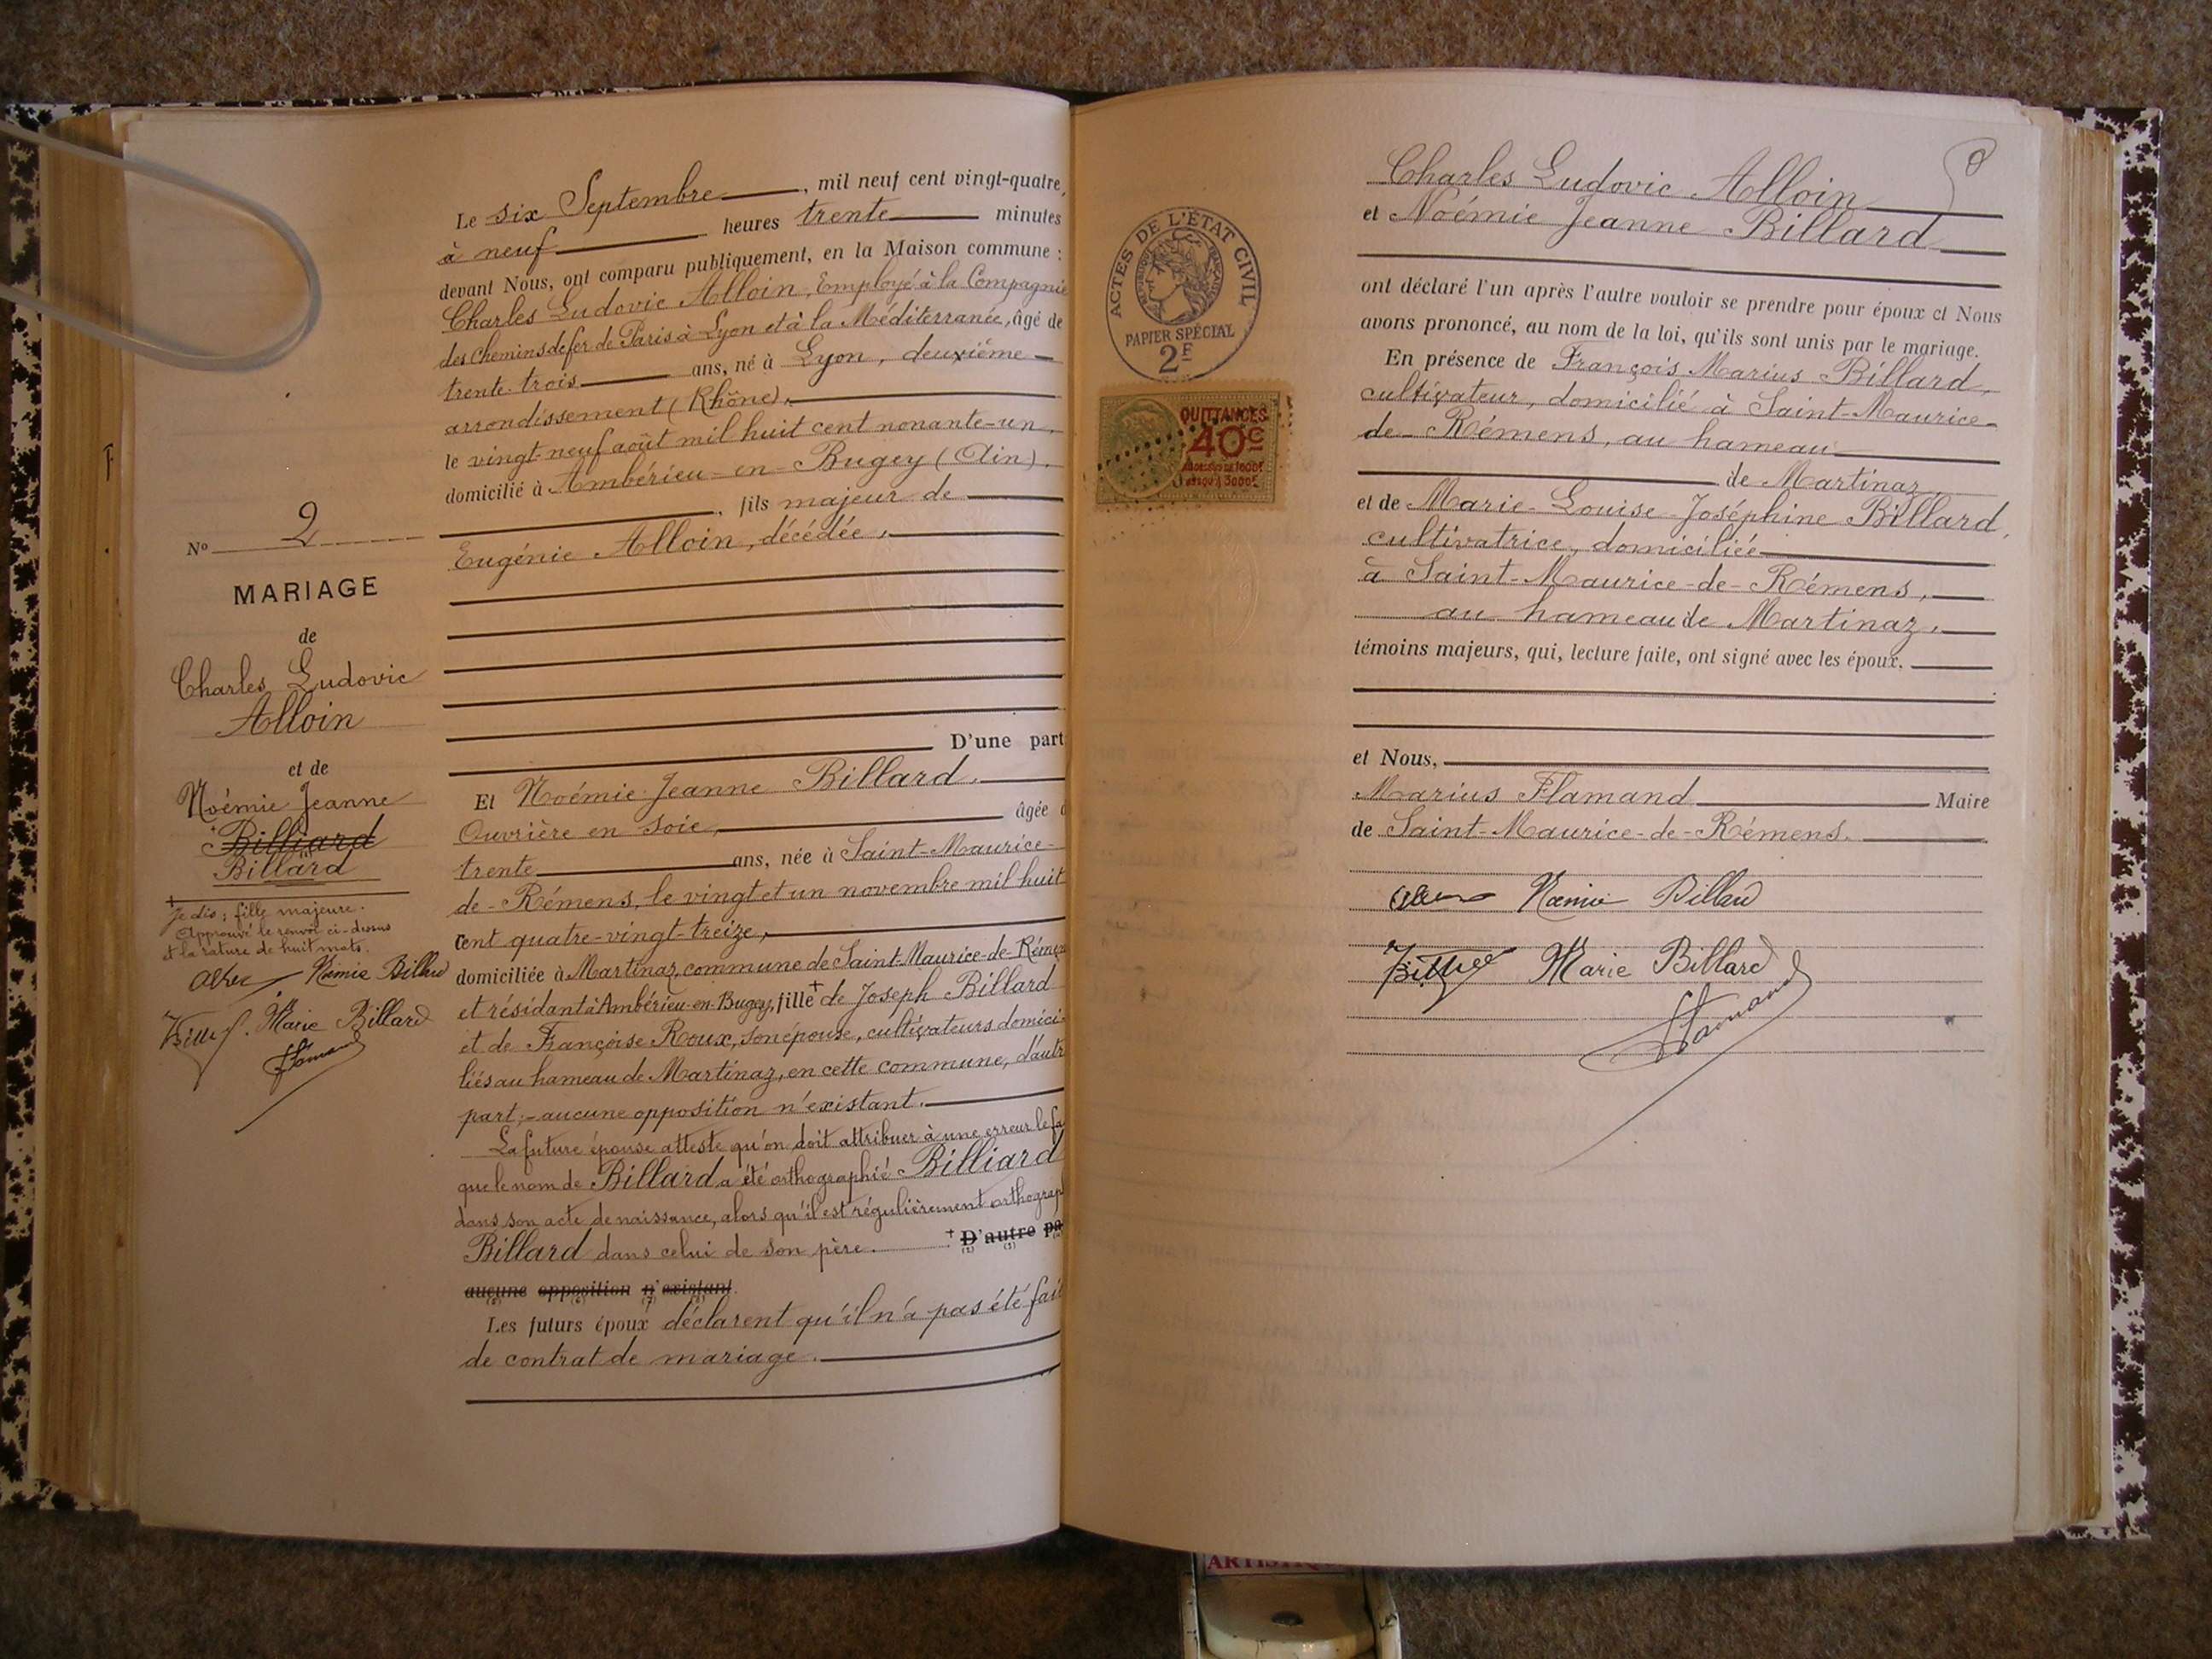 Le six Septembre, mil neuf cent vingt-quatre,
à neuf heures trente minutes
devant Nous, ont comparu publiquement, en la Maison commune :
Charles Ludovic Alloin, Employé à la Compagnie
des Chemins de fer de Paris à Lyon et à la Méditerranée, âgé de
trente-trois ans, né à Lyon, deuxième
arrondissement (Rhône),
le vingt-neuf août mil huit cent nonante-un,
domicilié à Ambérieu-en-Bugey (Ain),
, fils majeur de
Eugénie Alloin, décédée,
D'une part
Et Noémie Jeanne Billard,
Ouvrière en soie, âgée
trente ans, née à Saint-Maurice-
de-Rémens, le vingt et un novembre mil huit
cent quatre-vingt-treize,
domiciliée à Martinaz, commune de Saint-Maurice-de-Rémens
et résidant à Ambérieu-en-Bugey, fille + de Joseph Billard
et de Françoise Roux, son épouse, cultivateurs domici-
liés au hameau de Martinaz, en cette commune, d'autre
part ; - aucune opposition n'existant.
La future épouse atteste qu'on doit attribuer à une erreur le fa
que le nom de Billard a été orthographié Billiard
dans son acte de naissance, alors qu'il est régulièrement orthograp
Billard dans celui de son père. + D'autre pa
(2) (3)
aucune opposition n'existant.
(5) (6) (7) (8)
Les futurs époux déclarent qu'il n'a pas été fait
de contrat de mariage.
No 2
MARIAGE
de
Charles Ludovic
Alloin
et de
Noémie Jeanne
+ Billiard
Billard
+
Je dis ; fille majeure.
Approuvé le renvoi ci-dessus
et la rature de huit mots.
Noémie Billard
Marie Billard
Flamand
ACTES DE L'ÉTAT CIVIL
RÉPUBLIQUE FRANÇAISE
PAPIER SPÉCIAL
2F
QUITTANCES
40c
AU-DESSUS DE 1000F
JUSQU'À 3000F
Charles Ludovic Alloin
et Noémie Jeanne Billard
ont déclaré l'un après l'autre vouloir se prendre pour époux et Nous
avons prononcé, au nom de la loi, qu'ils sont unis par le mariage.
En présence de François Marius Billard,
cultivateur, domicilié à Saint-Maurice-
de-Rémens, au hameau
de Martinaz,
et de Marie-Louise-Joséphine Billard,
cultivatrice, domiciliée
à Saint-Maurice-de-Rémens,
au hameau de Martinaz,
témoins majeurs, qui, lecture faite, ont signé avec les époux.
et Nous,
Marius Flamand Maire
de Saint-Maurice-de-Rémens.
Noémie Billard
Marie Billard
Flamand